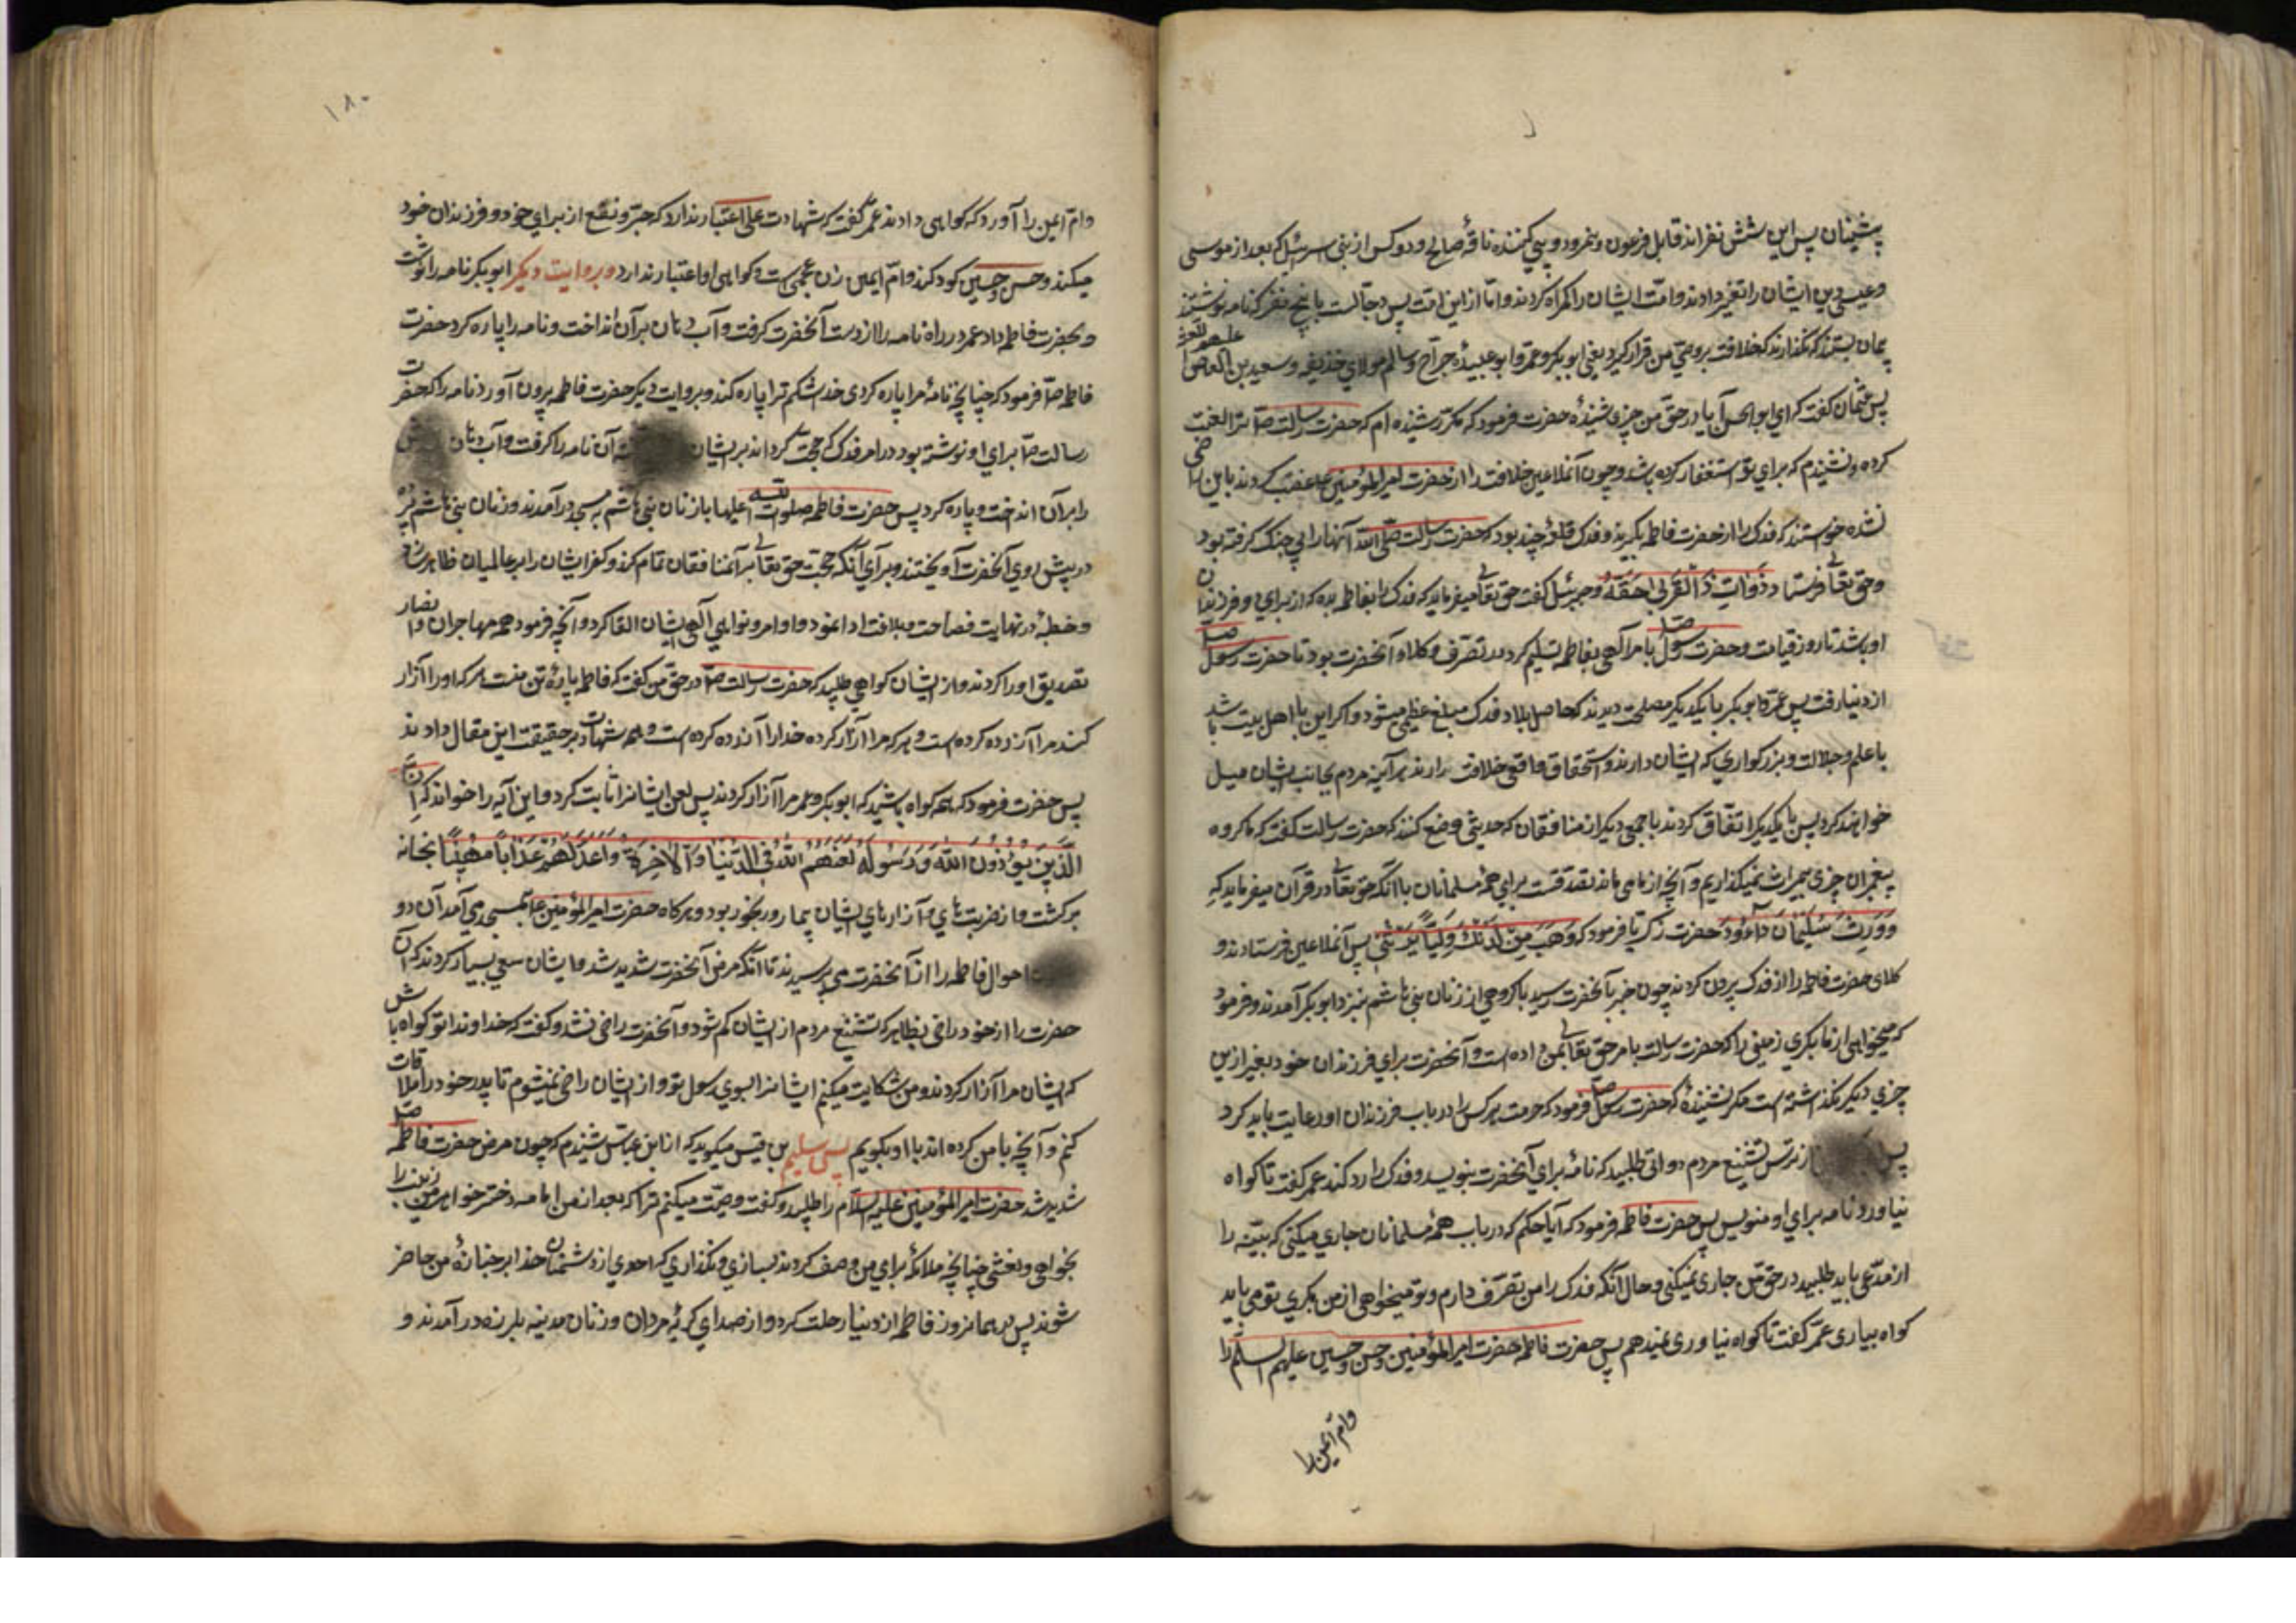 پیشینان پس این شش نفراند قابل فرعون و نمرود و پی کننده ناقهٔ صالح و دو کس از بنی اسرائیل که بعد از موسی
و عیسی دین ایشان را تغیر دادند و امت ایشان را کمراه کردند و اما از این امت پس دجالست با پنج نفر که نامه نوشتند
پیمان بستند که نکذارند که خلافت بر وصی من قرار کیرد یعنی ابوبکر و عمر و ابوعبیدهٔ جراح و سالم مولای حذیفه و سعید بن العاص علیهم اللعنة
پس عثمان کفت که ای ابوالحسن آیا در حق من چیزی شنیدهٔ حضرت فرمود که مکرر شنیده ام که حضرت رسالت ص ترا لعنت
کرده و نشنیدم که برای تو استغفار کرده باشد و چون آنملاعین خلافت را از حضرت امیرالمؤمنین ع غصب کردند باین راضی
نشده خواستند که فدک را از حضرت فاطمه بکیرند و فدک قلعهٔ چند بود که حضرت رسالت صلی الله آنها را بی جنک کرفته بود
و حق تعالی فرستاد وَآتِ ذَا الْقُرْبی حَقَّهُ و جبرئیل کفت حق تعالی میفرماید که فدک را بفاطمه بده که از برای او و فرزندان
او باشد تا روز قیامت و حضرت رسول ص بامر الهی بفاطمه تسلیم کرد و در تصرف وکلاء آنحضرت بود تا حضرت رسول ص
از دنیا رفت پس عمر و ابوبکر با یکدیکر مصلحت دیدند که حاصل بلاد فدک مبلغ عظیمی میشود و اکر این با اهل بیت باشد
با علم و جلالت و بزرکواری که ایشان دارند و استحقاق واقعی خلافت دارند هر آینه مردم بجانب ایشان میل
خواهند کرد پس با یکدیکر اتفاق کردند با جمعی دیکر از منافقان که حدیثی وضع کنند که حضرت رسالت کفت که ما کروه
پیغمبران چیزی بمیراث نمیکذاریم و آنچه از ما می ماند تصدقست برای همهٔ مسلمانان با آنکه حق تعالی در قرآن میفرماید که
وَوَرِثَ سُلَیْمَانُ دَاوُدَ حضرت زکریا فرمود که وَهَبْ مِنْ لَدُنْکَ وَلِیّاً یَرِثُنِی پس آنملاعین فرستادند و
کلای حضرت فاطمه را از فدک بیرون کردند چون خبر بآنحضرت رسید با کروهی از زنان بنی هاشم بنزد ابوبکر آمدند و فرمود
که میخواهی از ما بکیری زمینی را که حضرت رسالت بامر حق تعالی بمن داده است و آنحضرت برای فرزندان خود بغیر از این
چیزی دیکر نکذاشته است مکر نشنیدهٔ که حضرت رسول ص فرمود که حرمت هر کس را در باب فرزندان او رعایت باید کرد
پس از ترس تشنیع مردم دواتی طلبید که نامهٔ برای آنحضرت بنویسد و فدک را رد کند عمر کفت تا کواه
نیاورد نامه برای او منویس پس حضرت فاطمه فرمود که آیا حکم که در باب همهٔ مسلمانان جاری میکنی که بینه را
از مدعی باید طلبید در حق من جاری نمیکنی و حال آنکه فدک را من تصرف دارم و تو میخواهی از من بکیری تو می باید
کواه بیاری عمر کفت تا کواه نیاوری نمیدهم پس حضرت فاطمه حضرت امیرالمؤمنین و حسن و حسین علیهم السلام را
وام ایمن را
۱۸۰
وام ایمن را آورد که کواهی دادند عمر کفت که شهادت علی اعتبار ندارد که جر و نفع از برای خود و فرزندان خود
میکند و حسن و حسین کودکند و ام ایمن زن عجمی است و کواهی او اعتبار ندارد و بروایت دیکر ابوبکر نامه را نوشت
و بحضرت فاطمه داد عمر در راه نامه را از دست آنحضرت کرفت و آب دهان بر آن انداخت و نامه را پاره کرد حضرت
فاطمه ص فرمود که چنانچه نامهٔ مرا پاره کردی خدا شکم ترا پاره کند و بروایت دیکر حضرت فاطمه بیرون آورد نامه را که حضرت
رسالت ص برای او نوشته بود در امر فدک که حجت کرداند بر ایشان آن نامه را کرفت و آب دهان
را بر آن انداخت و پاره کرد پس حضرت فاطمه صلوات الله علیها با زنان بنی هاشم به مسجد درآمدند و زنان بنی هاشم پرده
در پیش روی آنحضرت آویختند و برای آنکه حجت حق تعالی بر آنمنافقان تمام کند و کفر ایشان را بر عالمیان ظاهر سازد
و خطبهٔ در نهایت فصاحت و بلاغت ادا نمود و اوامر و نواهی الهی بایشان القا کرد و آنچه فرمود همه مهاجران و انصار
تصدیق او را کردند و از ایشان کواهی طلبید که حضرت رسالت ص در حق من کفت که فاطمه پارهٔ تن منست هر که او را آزار
کند مرا آزرده کرده است و هر که مرا آزار کرده خدا را آزرده کرده است و همه شهادت بر حقیقت این مقال دادند
پس حضرت فرمود که همه کواه باشید که ابوبکر و عمر مرا آزار کردند پس لعن ایشانرا ثابت کرد و این آیه را خواند که إِنَّ
الَّذِینَ یُؤْذُونَ اللّهَ وَرَسُولَهُ لَعَنَهُمُ اللّهُ فِی الدُّنْیَا وَالْآخِرَةِ وَأَعَدَّ لَهُمْ عَذَاباً مُهِیناً بخانه
برکشت و از ضربت های و آزارهای ایشان بیمار و رنجور بود و هرکاه حضرت امیرالمؤمنین ع بمسجد می آمد آن دو
احوال فاطمه را از آنحضرت می پرسیدند تا آنکه مرض آنحضرت شدید شد و ایشان سعی بسیار کردند که آن
حضرت را از خود راضی بظاهر که تشنیع مردم از ایشان کم شود و آنحضرت راضی نشد و کفت که خداوندا تو کواه باش
که ایشان مرا آزار کردند و من شکایت میکنم ایشانرا بسوی رسول تو و از ایشان راضی نمیشوم تا پدر خود را ملاقات
کنم و آنچه با من کرده اند با او بکویم پس سلیم بن قیس میکوید که از ابن عباس شنیدم که چون مرض حضرت فاطمه ص
شدید شد حضرت امیرالمؤمنین علیه السلام را طلبید و کفت وصیت میکنم ترا که بعد از من امامه دختر خواهر من زینب را
بخواهی و نعشی چنانچه ملائکه برای من وصف کردند بسازی و نکذاری که احدی از دشمنان خدا بر جنازهٔ من حاضر
شوند پس در همانروز فاطمه از دنیا رحلت کرد و از صدای کریهٔ مردان و زنان مدینه بلرزه درآمدند و